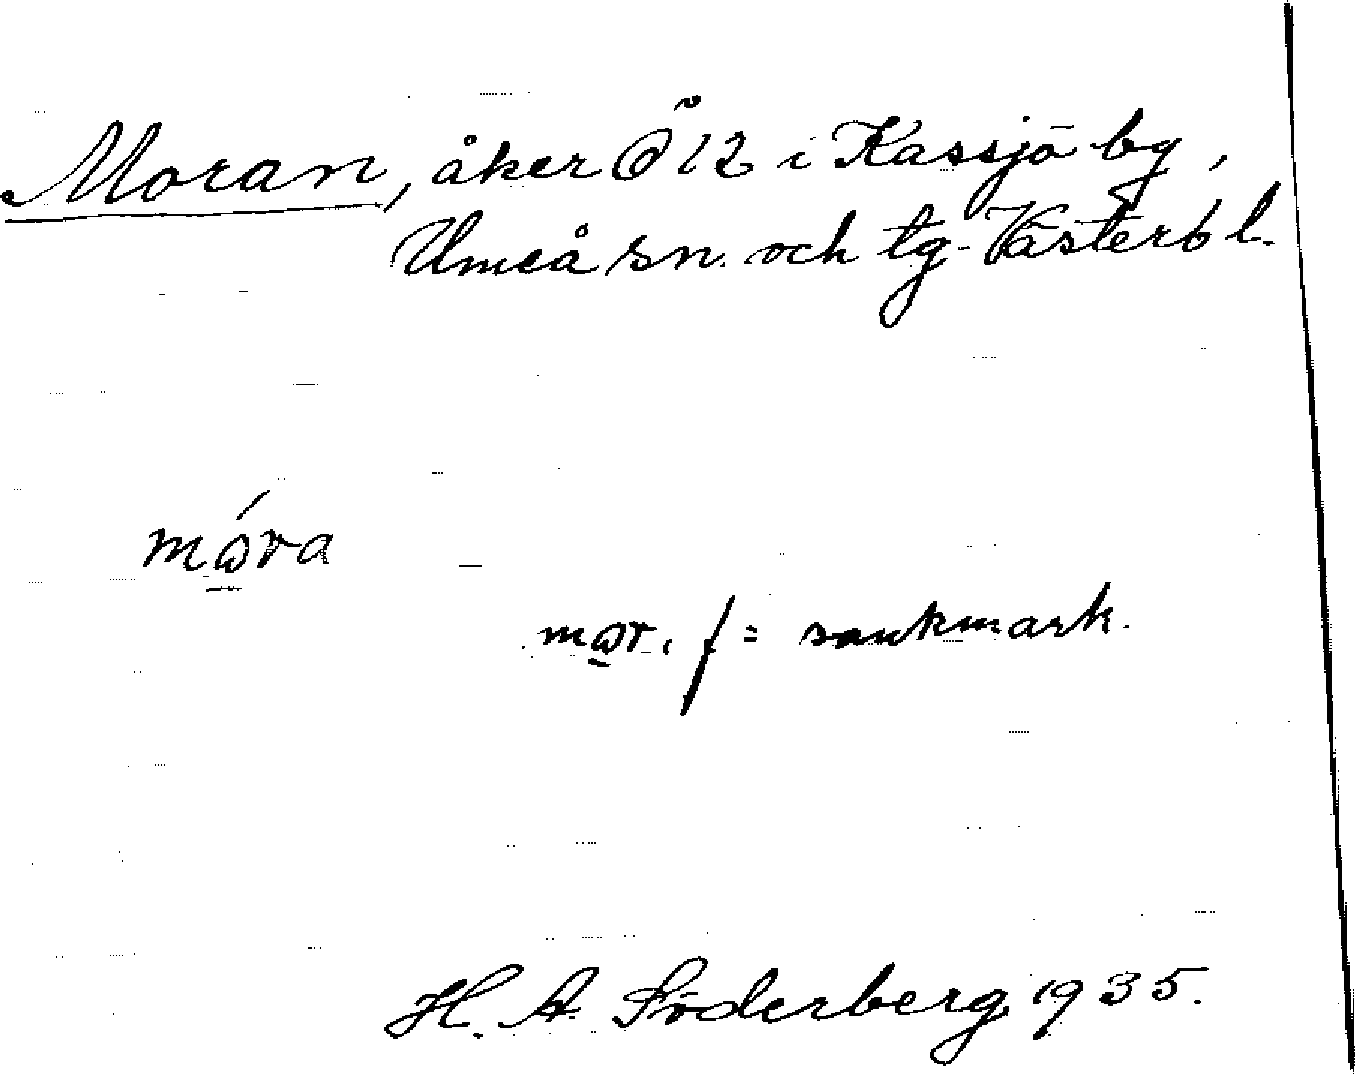 Moran, åker Ö 12 i Kassjö by,
Umeå sn. och tg. Västerb l.
mó̱ra
mo̱r. f = sankmark.
H. A. Söderberg 1935.